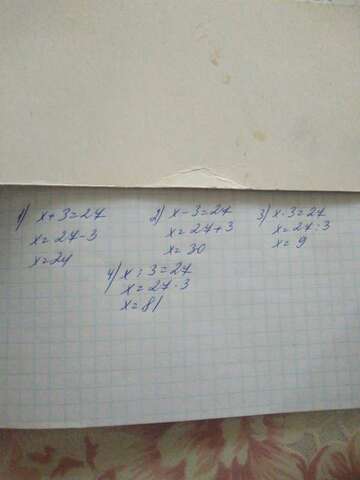 1) x + 3 = 27
x = 27 - 3
x = 24
2) x - 3 = 27
x = 27 + 3
x = 30
3) x · 3 = 27
x = 27 : 3
x = 9
4) x : 3 = 27
x = 27 · 3
x = 81